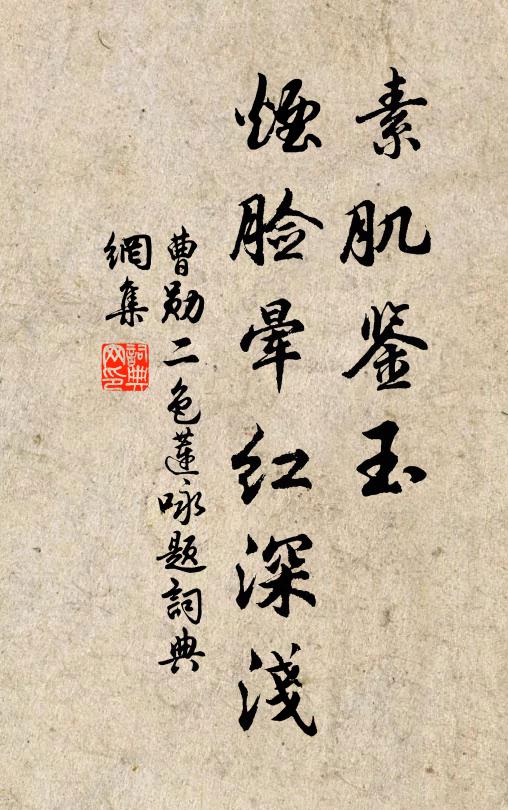 素肌鉴玉
烟脸晕红深浅
曹勋二色莲咏题詞典
網集
詞典
网印